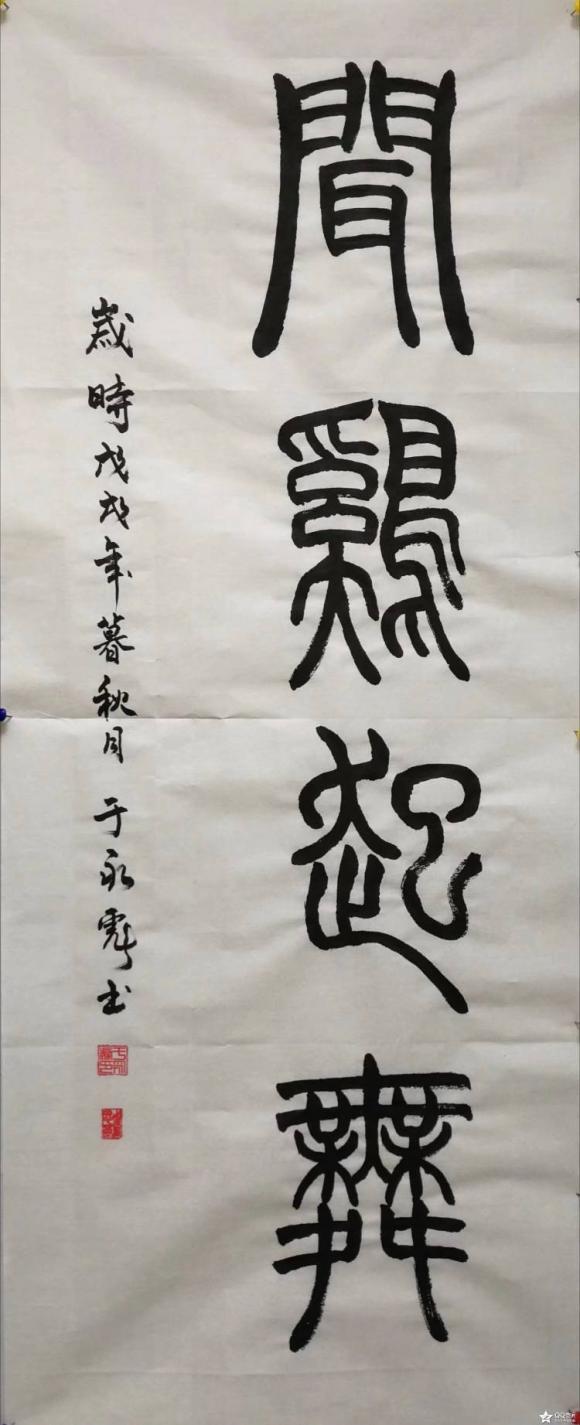 聞鷄起舞
歲時戊戌年暮秋月于永彪書